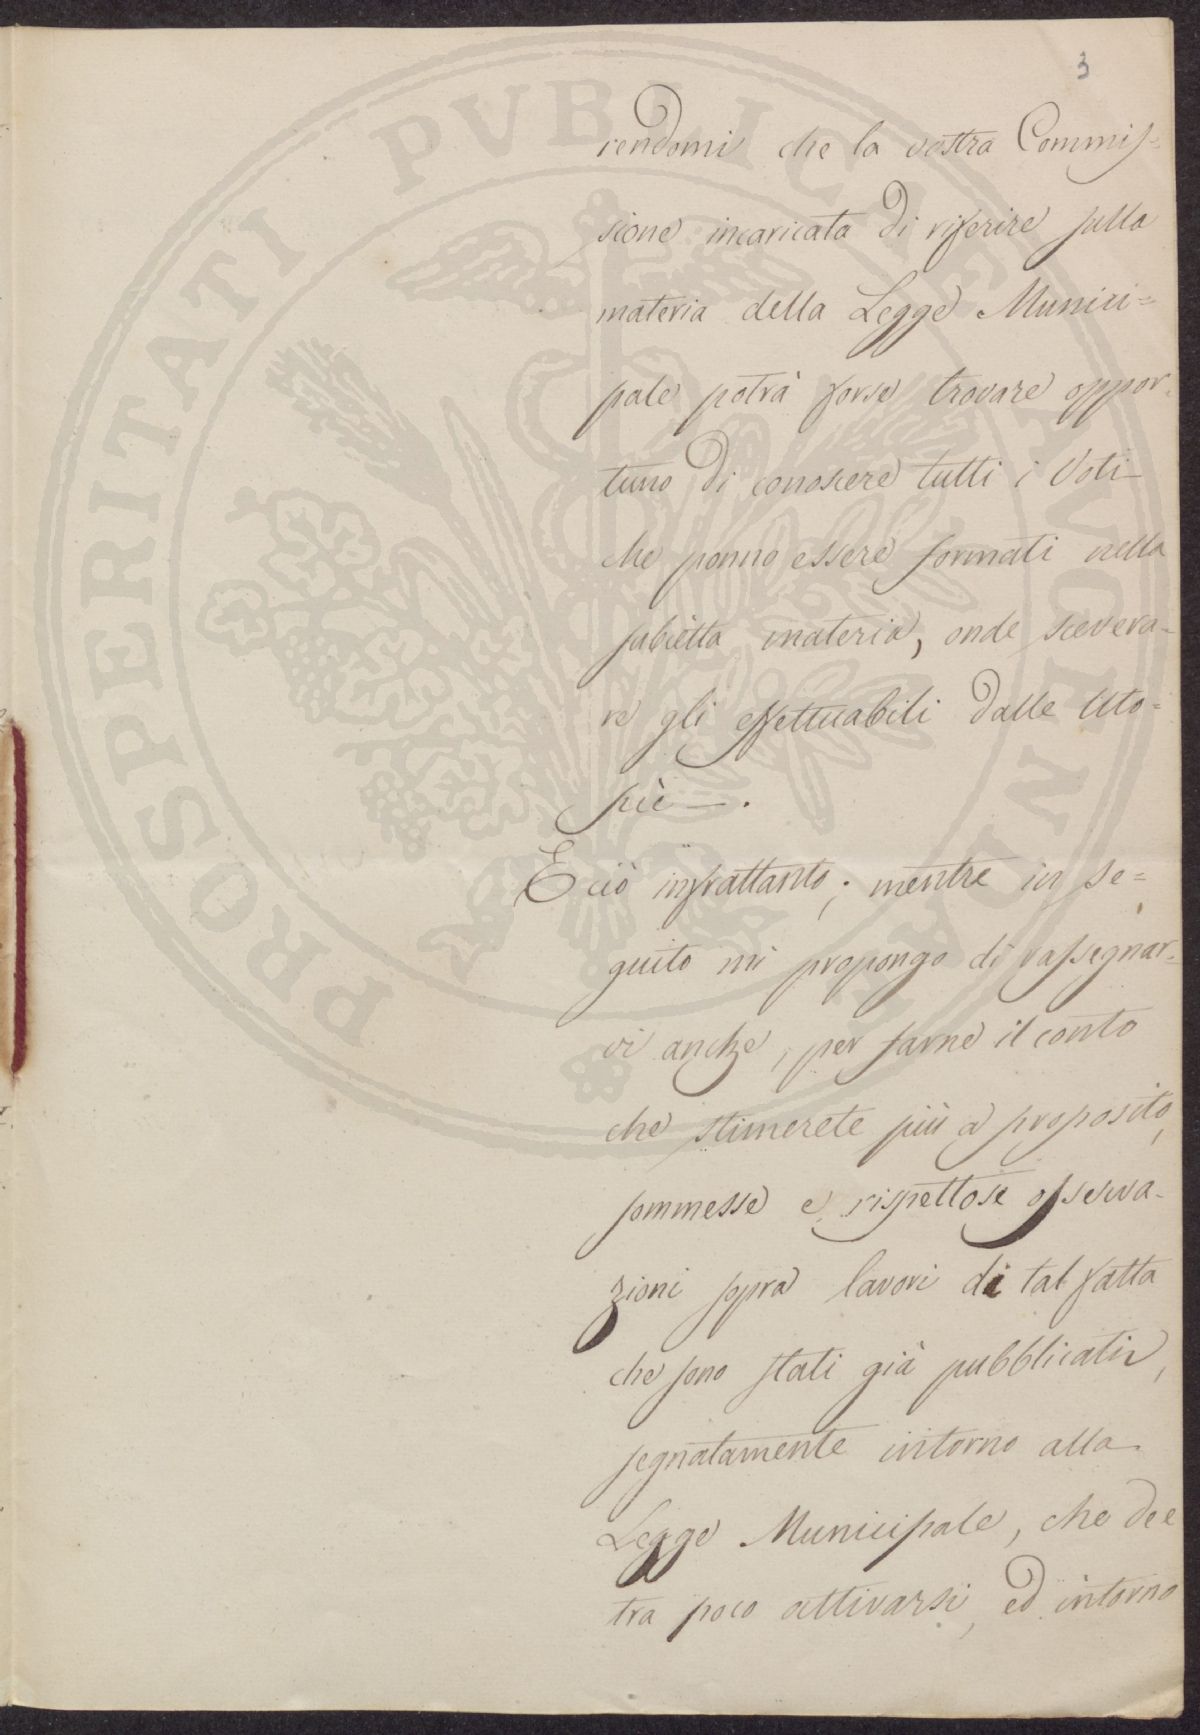 3
rendomi che la vostra Commis-
sione incaricata di riferire sulla
materia della Legge Munici=
pale potrà forse trovare oppor-
tuno di conoscere tutti i Voti
che ponno essere formati nella
subietta materia, onde scevera-
re gli effettuabili dalle Uto=
pie —.
E ciò infrattanto; mentre in se=
guito mi propongo di rassegnar-
vi anche, per farne il conto
che stimerete più a proposito,
sommesse e rispettose osserva-
zioni sopra lavori di tal fatta
che sono stati già pubblicati,
segnatamente intorno alla
Legge Municipale, che dee
tra poco attivarsi, ed intorno
PROSPERITATI PVBLICAE AVGENDAE